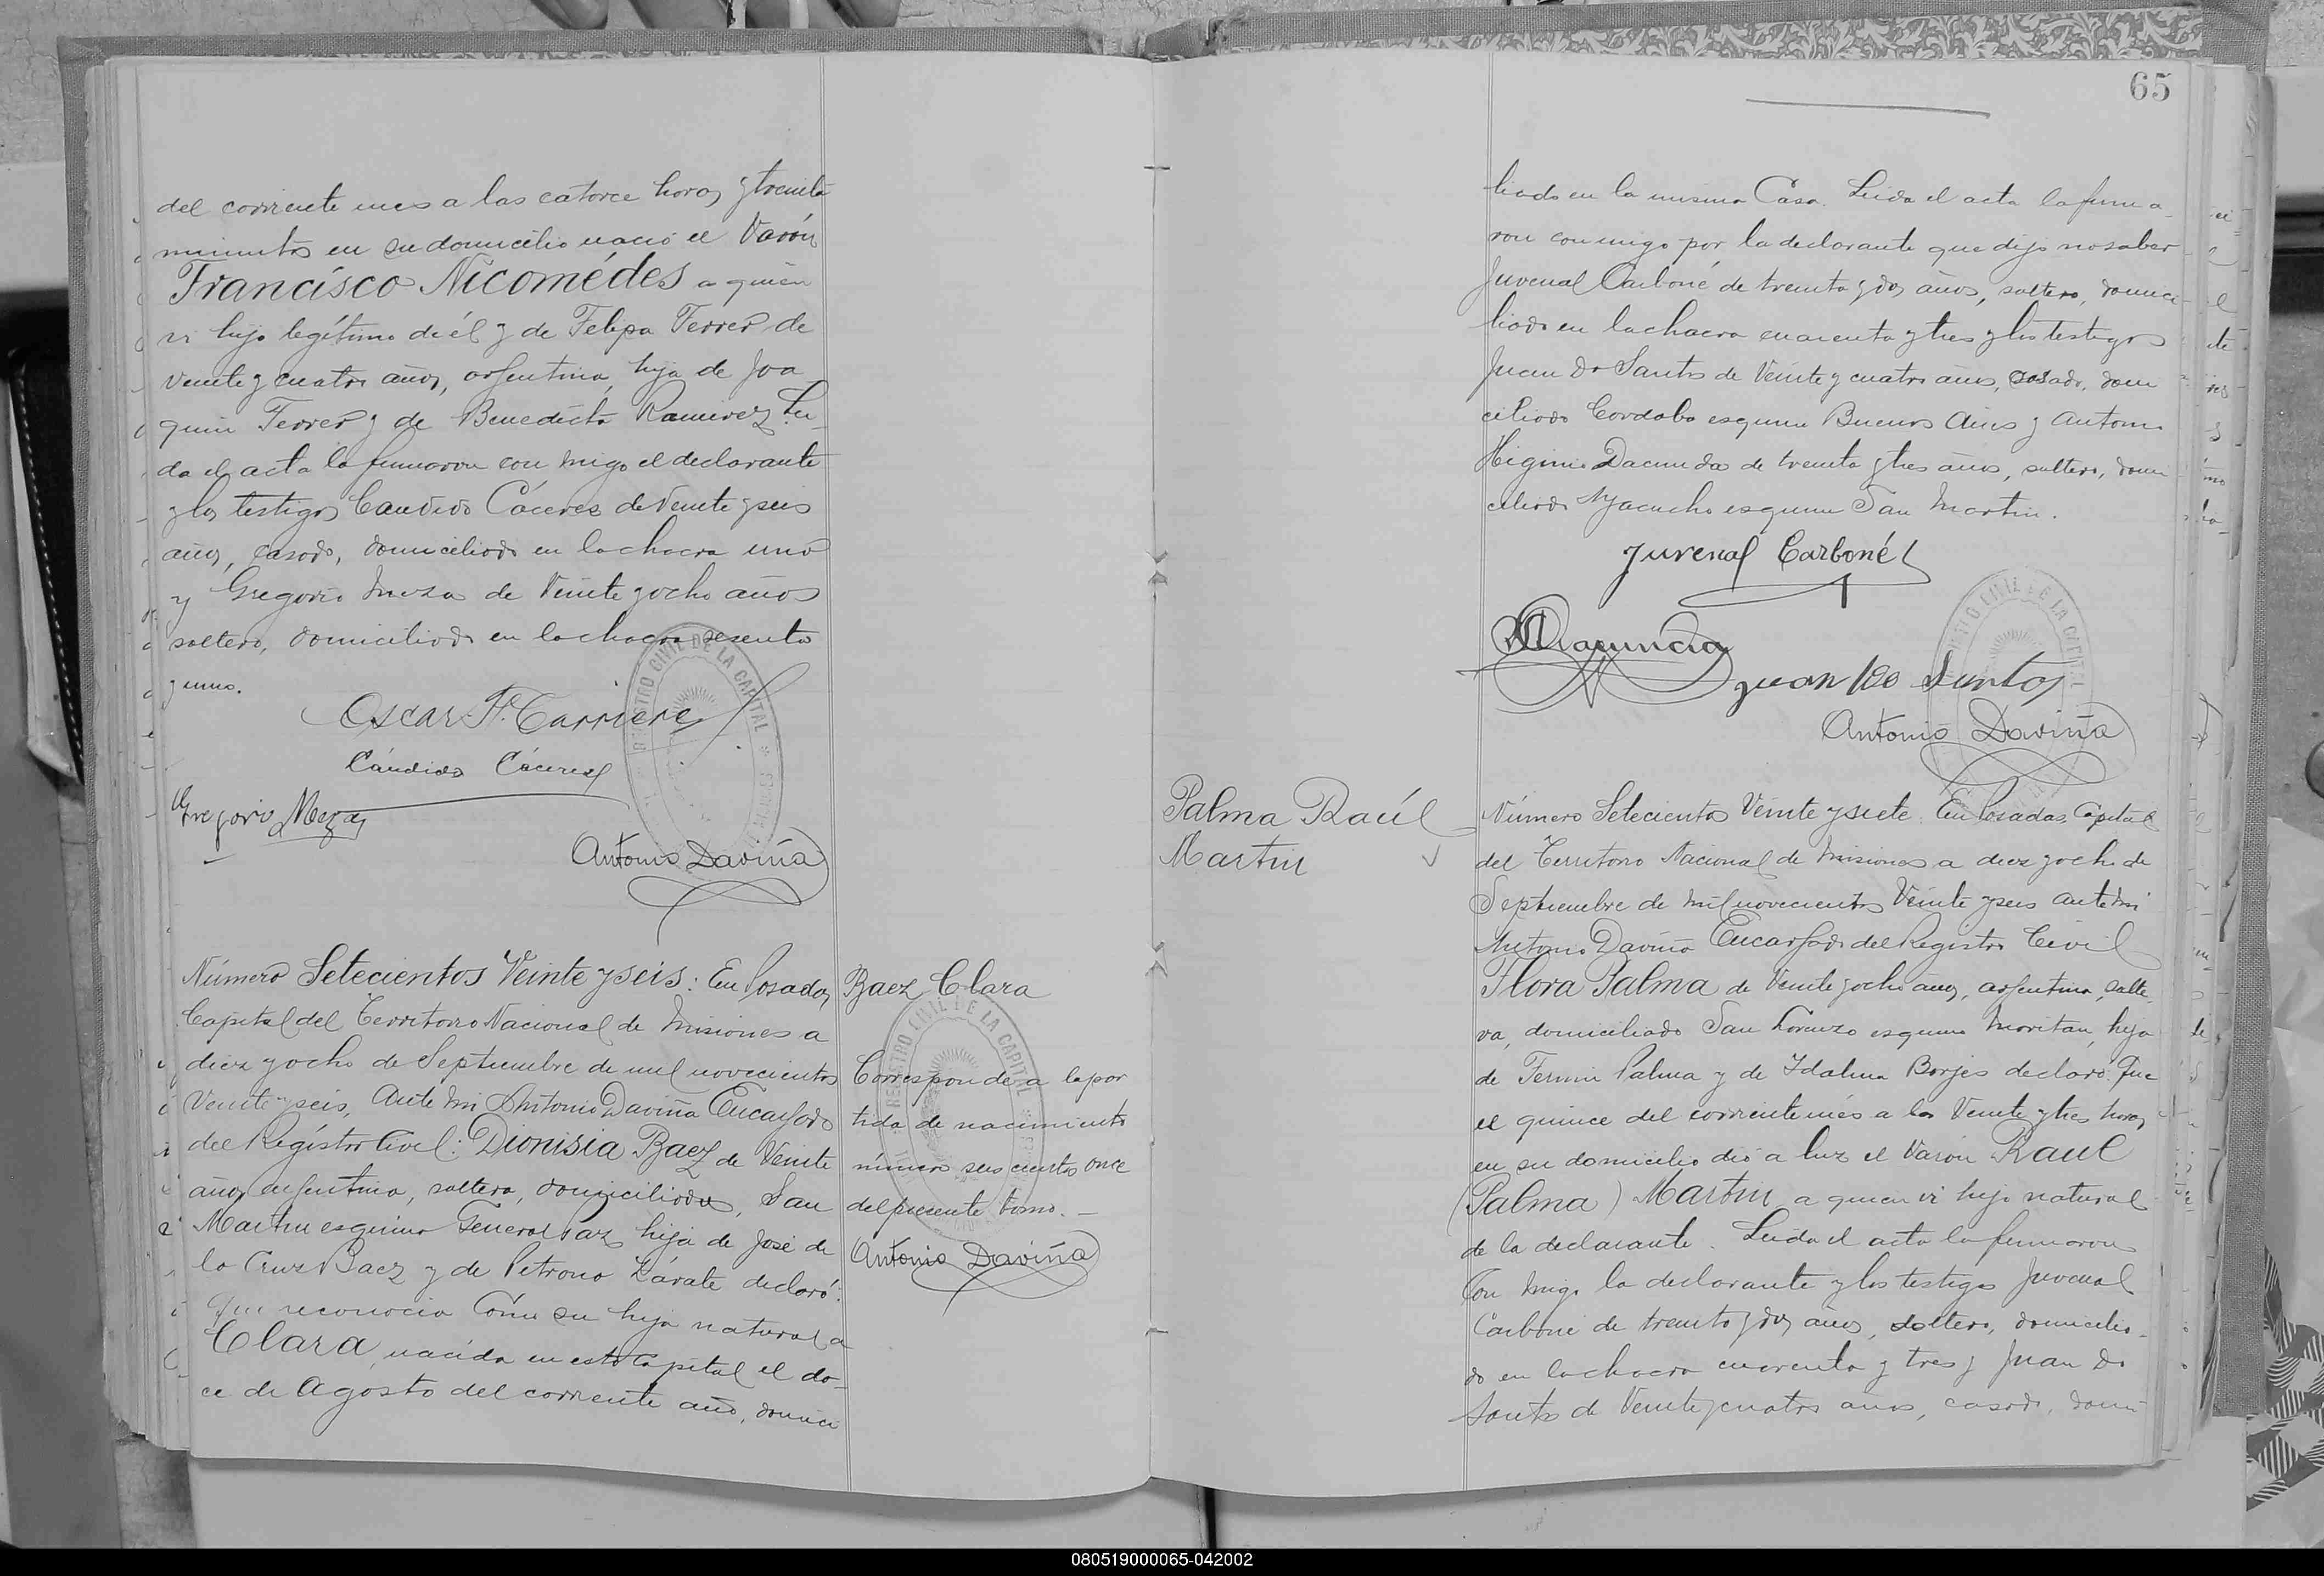 del corriente mes a las catorce horas y treinta
minutos en su domicilio nació el Varón
Francisco Nicomédes a quien
vi hijo legítimo de él y de Felipa Ferrer de
veinte y cuatro años, argentina, hija de Joa
quin Ferrer y de Benedicta Ramirez. Lei
da el acta la firmaron con migo el declarante
y los testigos Candido Cáceres de Veinte y seis
años, casado, domiciliado en la chacra uno
y Gregorio Meza de Veinte y ocho años
soltero, domiciliado en la chacra sesenta
y uno.
Oscar F. Carriere
Cándido Cáceres
Gregorio Meza
Antonio Daviña
REGISTRO CIVIL DE LA CAPITAL
Número Setecientos Veinte y seis: En Posadas,
Capital del Territorio Nacional de Misiones a
diez y ocho de Septiembre de mil novecientos
Veinte y seis, Ante mi Antonio Daviña Encargado
del Registro Civil: Dionisia Baez de Veinte
años argentina, soltera, domiciliada, San
Martin esquina General Paz hija de José de
la Cruz Baez y de Petrona Zárate declaró:
Que reconocia Como su hija natural a
Clara, nacida en esta Capital el do-
ce de Agosto del corriente año, domici
Baez Clara
Corresponde a la par
tida de nacimiento
número seiscientos once
del presente tomo. —
Antonio Daviña
REGISTRO CIVIL DE LA CAPITAL
65
liada en la misma Casa. Leida el acta la firma
ron conmigo por la declarante que dijo no saber
Juvenal Carboné de treinta y dos años, soltero, domici
liado en la chacra cuarenta y tres y los testigos
Juan Do Santos de Veinte y cuatro años, casado, domi
ciliado Cordoba esquina Buenos Aires y Antonio
Higinio Dacunda de treinta y tres años, soltero, domi
ciliado Ayacucho esquina San Martin.
Juvenal Carboné
Juan Do Santos
Antonio Daviña
REGISTRO CIVIL DE LA CAPITAL
Palma Raúl
Martin
Número Setecientos Veinte y siete. En Posadas, Capital
del Territorio Nacional de Misiones a diez y ocho de
Septiembre de mil novecientos Veinte y seis ante mi
Antonio Daviña Encargado del Registro Civil
Flora Palma de Veinte y ocho años, argentina, solte
ra, domiciliada San Lorenzo esquina Moritan, hija
de Fermin Palma y de Idalina Borjes declaró: Que
el quince del corriente més a las Veinte y tres horas
en su domicilio dió a luz el Varón Raul
(Palma) Martin a quien vi hijo natural
de la declarante. Leida el acta la firmaron
Con migo la declarante y los testigos Juvenal
Carboné de treinta y dos años, soltero, domicilia-
do en la chacra cuarenta y tres y Juan Do
Santos de Veinte y cuatro años, casado, domi-
080519000065-042002